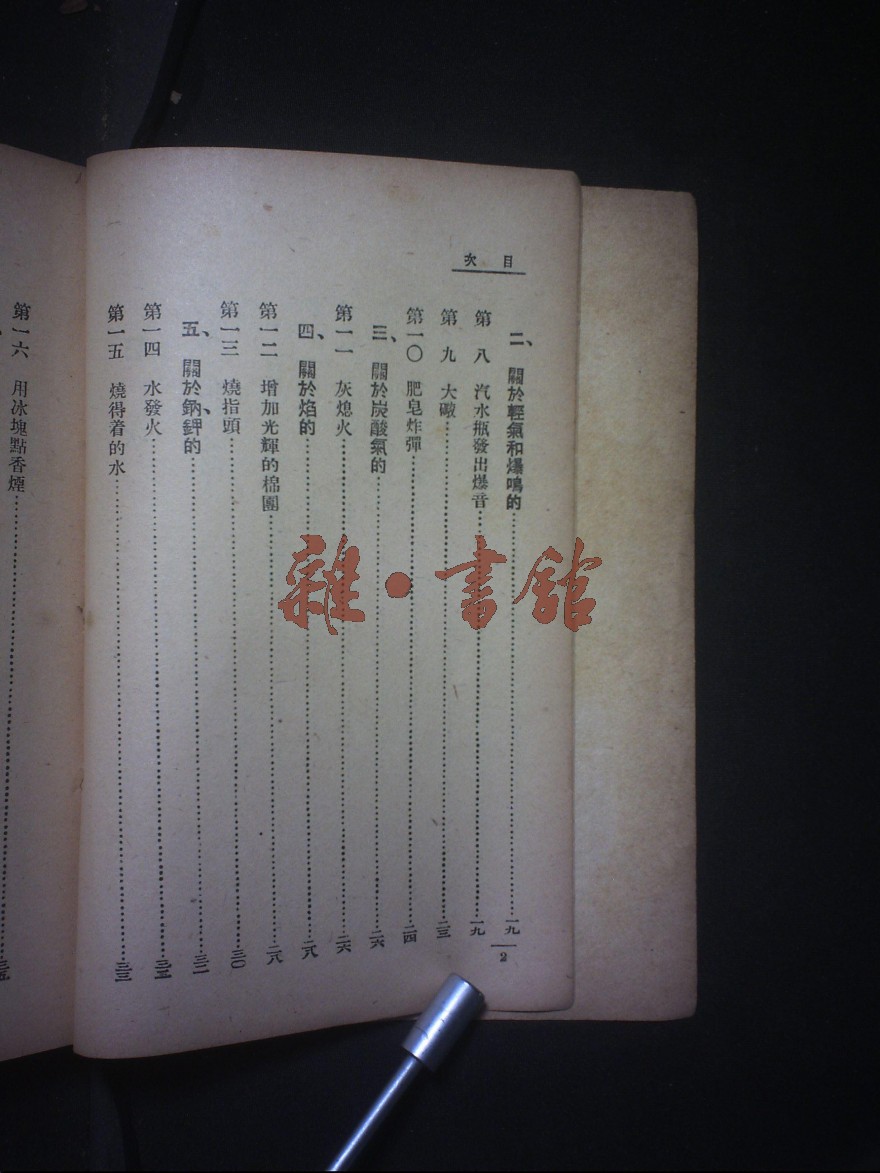 目次
二、關於輕氣和爆鳴的……一九
第八 汽水瓶發出爆音……一九
第九 大礮……二三
第一〇 肥皂炸彈……二四
三、關於炭酸氣的……二六
第一一 灰熄火……二六
四、關於焰的……二八
第一二 增加光輝的棉團……二八
第一三 燒指頭……三〇
五、關於鈉、鉀的……三二
第一四 水發火……三二
第一五 燒得着的水……三三
第一六 用冰塊點香煙……三五
2
雜·書館